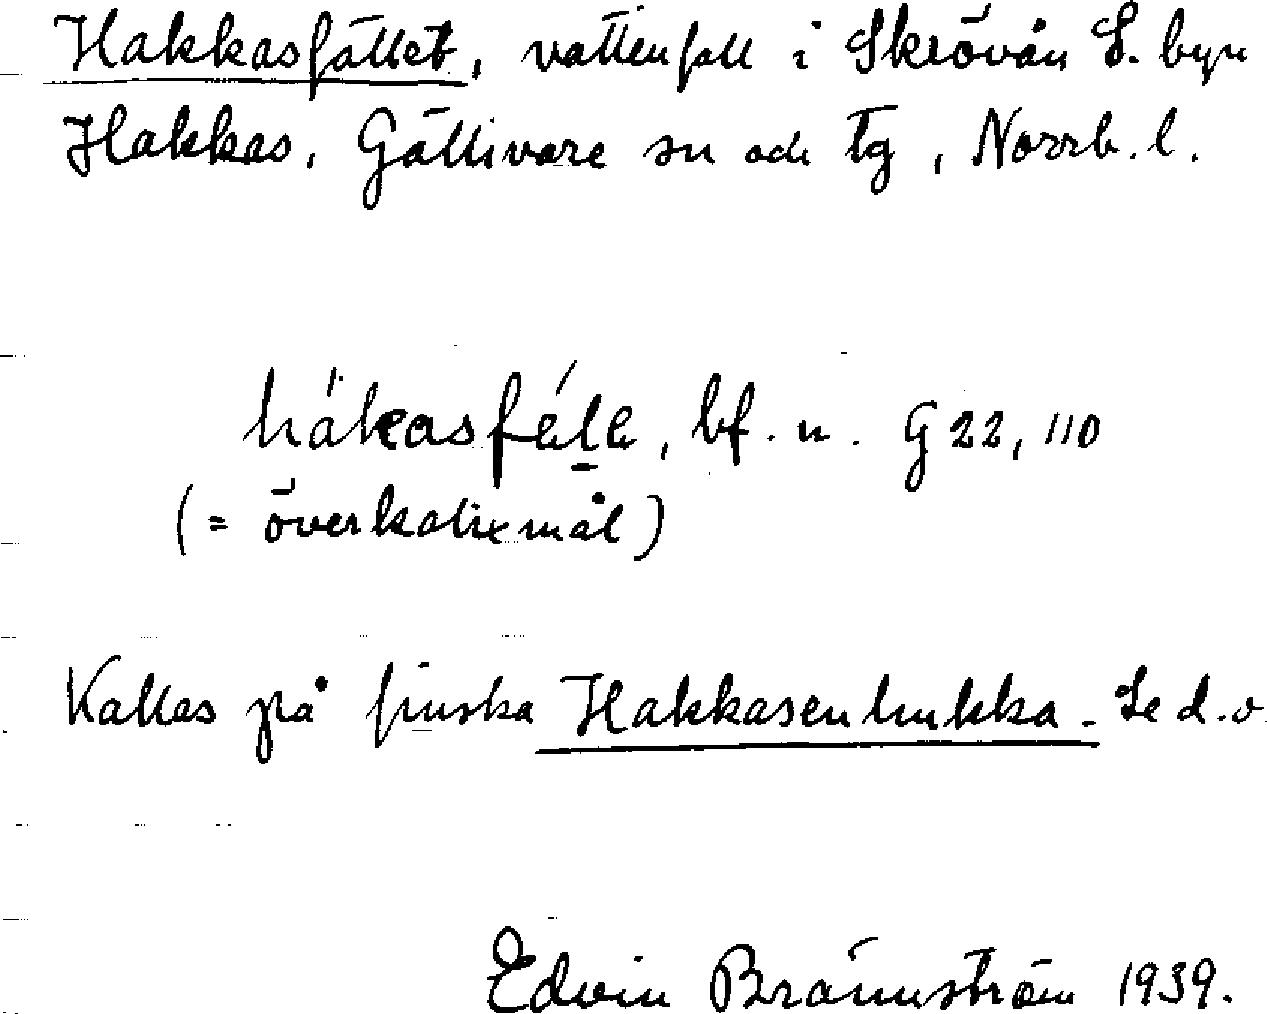 Hakkasfället, vattenfall i Skröván S. byn
Hakkas, Gällivare sn och tg, Norrb. l.
hákasfélɛ, bf. n. G 22, 110
(= överkalixmål)
Kallas på finska Hakkasenkukka. Se d.o.
Edvin Brännström 1939.